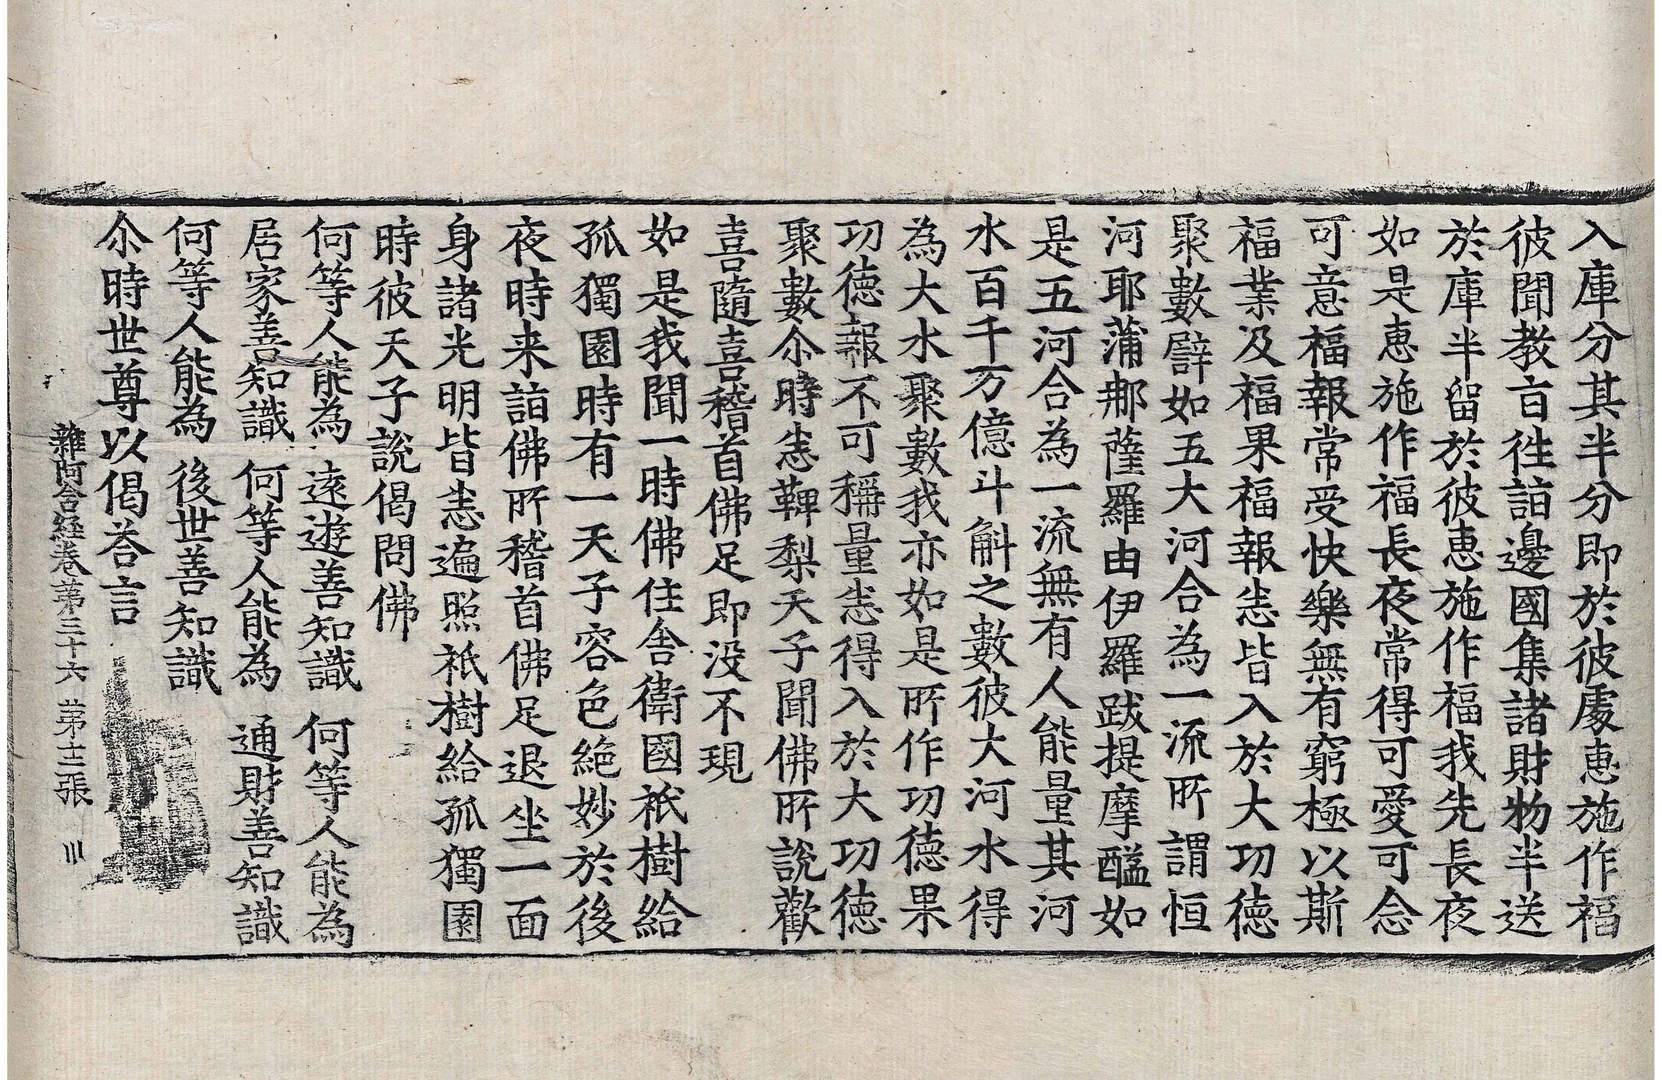 入庫分其半分即於彼處惠施作福
彼聞教言徃詣邊國集諸財物半送
於庫半留於彼惠施作福我先長夜
如是惠施作福長夜常得可愛可念
可意福報常受快樂無有窮極以斯
福業及福果福報悉皆入於大功德
聚數譬如五大河合為一流所謂恒
河耶蒲那薩羅由伊羅跋提摩醯如
是五河合為一流無有人能量其河
水百千万億斗斛之數彼大河水得
為大水聚數我亦如是所作功德果
功德報不可稱量悉得入於大功德
聚數尒時悉鞞梨天子聞佛所說歡
喜隨喜稽首佛足即没不現
如是我聞一時佛住舍衛國祇樹給
孤獨園時有一天子容色絶妙於後
夜時来詣佛所稽首佛足退坐一面
身諸光明皆悉遍照祇樹給孤獨園
時彼天子說偈問佛
何等人能為 遠遊善知識 何等人能為
居家善知識 何等人能為 通財善知識
何等人能為 後世善知識
尒時世尊以偈荅言
雜阿含経卷第三十六 第十二張